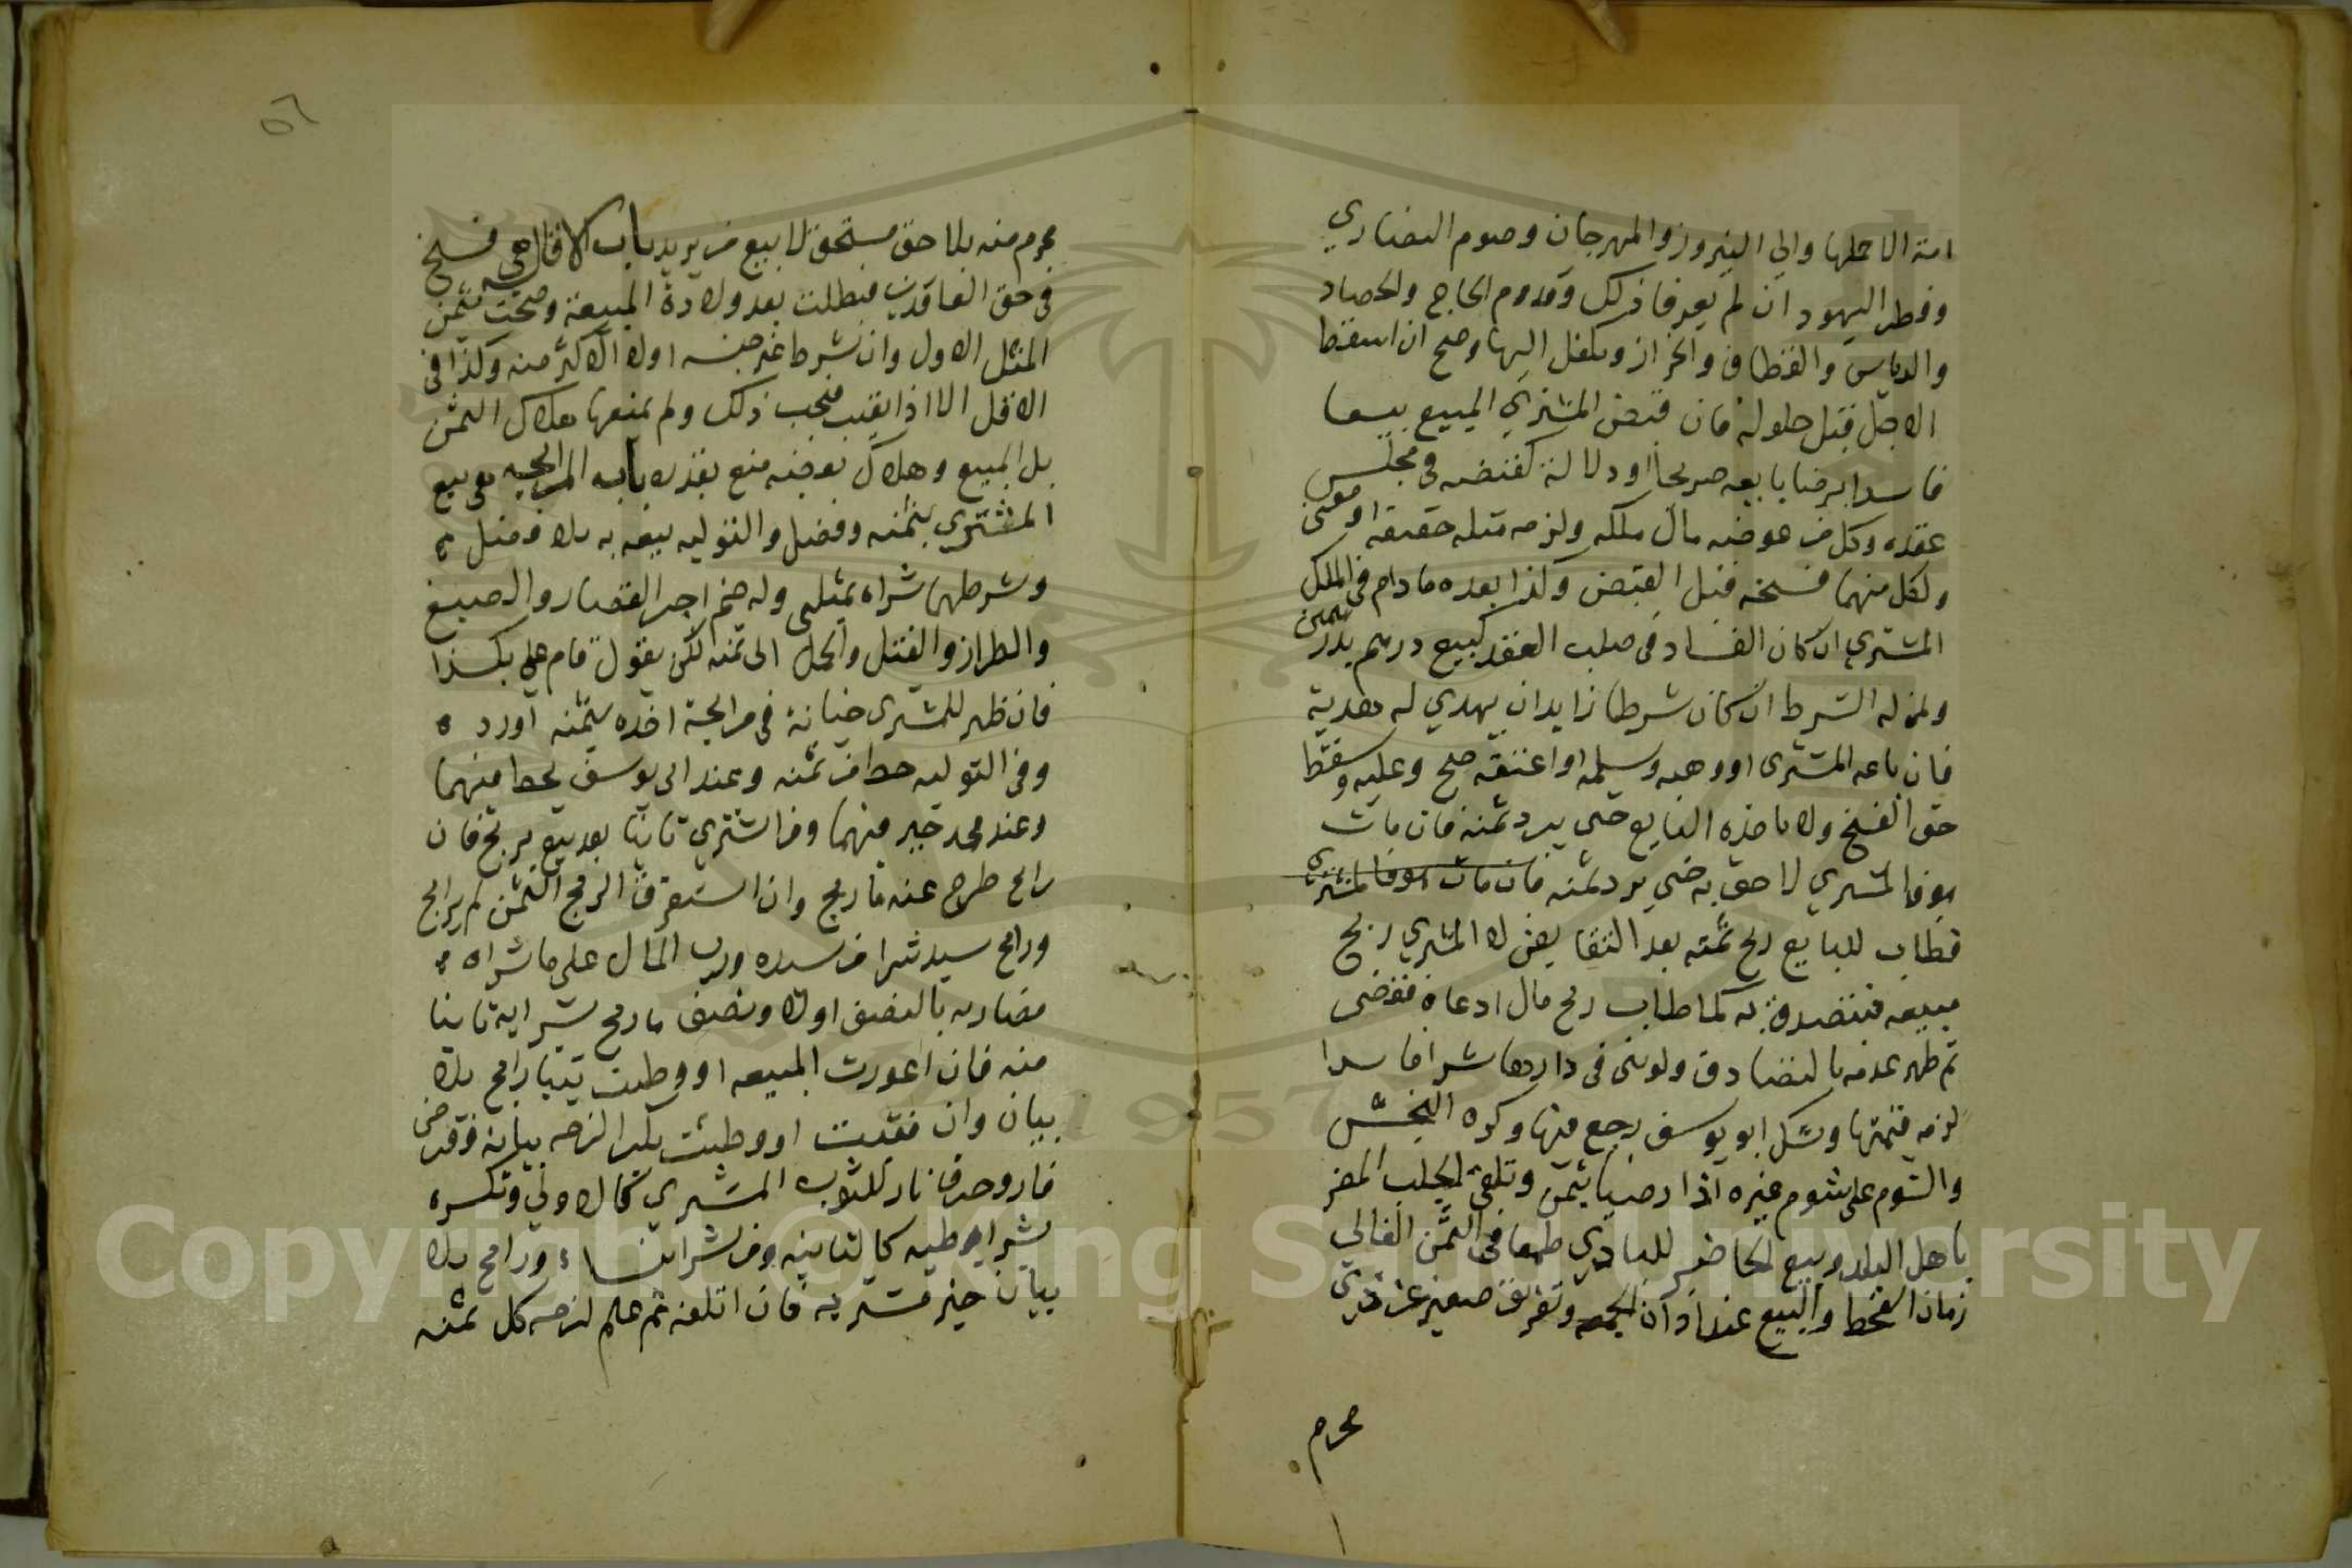 امة الا حملها والى النيروز والمهرجان وصوم النصاري
وفطر اليهود ان لم يعرفا ذلك وقدوم الحاج والحصاد
والدياس والقطاف والجزاز ويكفل اليها وصح ان اسقط
الاجل قبل حلوله فان قبض المشتري المبيع بيعا
فاسدا برضا بايعه صريحا او دلالة كقبضه في مجلس
عقده وكل من عوضيه مال ملكه ولزمه مثله حقيقة او معنى
ولكل منهما فسخه قبل القبض وكذا بعده مادام في الملك
المشتري ان كان الفساد في صلب العقد كبيع درهم بدرهمين
ولمن له الشرط ان كان شرطا زايدا ان يهدي له هدية
فان باعه المشترى او وهبه وسلمه او اعتقه صح وعليه وسقط
حق الفسخ ولا ياخذه البايع حتى يرد ثمنه فان مات
هو فالمشتري احق به حتى يرد ثمنه فان مات هو فالمشترى
فطاب للبايع ربح ثمنه بعد التقابض لا المشتري ربح
مبيعه فيتصدق به كما طاب ربح مال ادعاه فقضى
ثم ظهر عدمه بالتصادق ولو بنى في دار دها شرا فاسدا
لزمه قيمتها وشك ابو يوسف رجع فيها وكره النجش
والسوم على سوم غيره اذا رضيا بثمن وتلقى الجلب المضر
باهل البلد وبيع الحاضر للبادي طمعا في الثمن الغالي
زمان القحط والبيع عند اذان الجمعه وتفريق صغير عن ذي
محرم
٥٦
محرم منه بلا حق مستحق لا بيع من يزيد باب الاقاله هي فسخ
في حق العاقدين فبطلت بعد ولادة المبيعة وصحت بثمن
المثل الاول وان شرط غير جنسه اولا الاكثر منه وكذا في
الاقل الا اذا يعيب فيجب ذلك ولم يمنعها هلاك الثمن
بل المبيع وهلاك بعضه منع بقدره باب المرابحه هي بيع
المشتري بثمنه وفضل والتوليه بيعه به بلا فضل
وشرطهما شراه بمثلى وله ضم اجر القصار والصبغ
والطراز والفتل والحمل الى ثمنه لكن يقول قام علي بكذا
فان ظهر للمشترى خيانة في مرابحة اخذه بثمنه او رد
وفي التوليه حط من ثمنه وعند ابى يوسف يحط منهما
وعند محمد خير منهما ومن اشتري ثانيا بعد بيع بربح فان
رابح طرح عنه ما ربح وان استغرق الربح الثمن لم يرابح
ورابح سيد شرا من سيده ورب المال على ما شراه
مضاربه بالنصف اولا ونصف ما ربح بشرايه ثانيا
منه فان اعورت المبيعه او وطيت ثيبا رابح بلا
بيان وان فقيت او وطئت بكرا لزمه بيانه وقرض
فار وحرق نار للثوب المشتري كالاولى وتكسره
بشره وطيه كالثانيه ومن شرا بنسا ورابح بلا
بيان خير مشتريه فان اتلفه ثم علم لزمه كل ثمنه
Copyright © King Saud University
1957